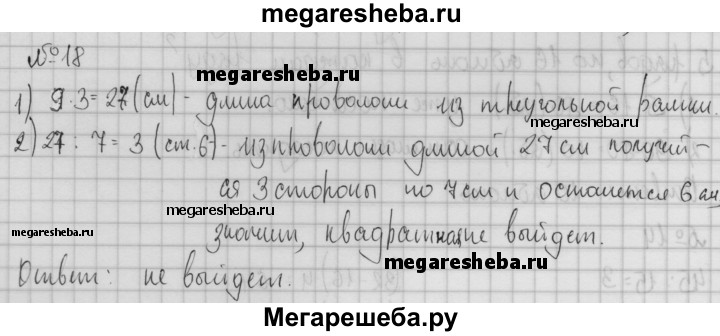 megaresheba.ru
№18
megaresheba.ru
1) 9·3=27(см) - длина проволоки из треугольной рамки.
megaresheba.ru
2) 27:7=3 (ст.6) - из проволоки длиной 27 см получит-
ся 3 стороны по 7 см и останется 6 см,
megaresheba.ru
megaresheba.ru
значит, квадрат не выйдет.
megaresheba.ru
Ответ: не выйдет.
Мегарешеба.ру